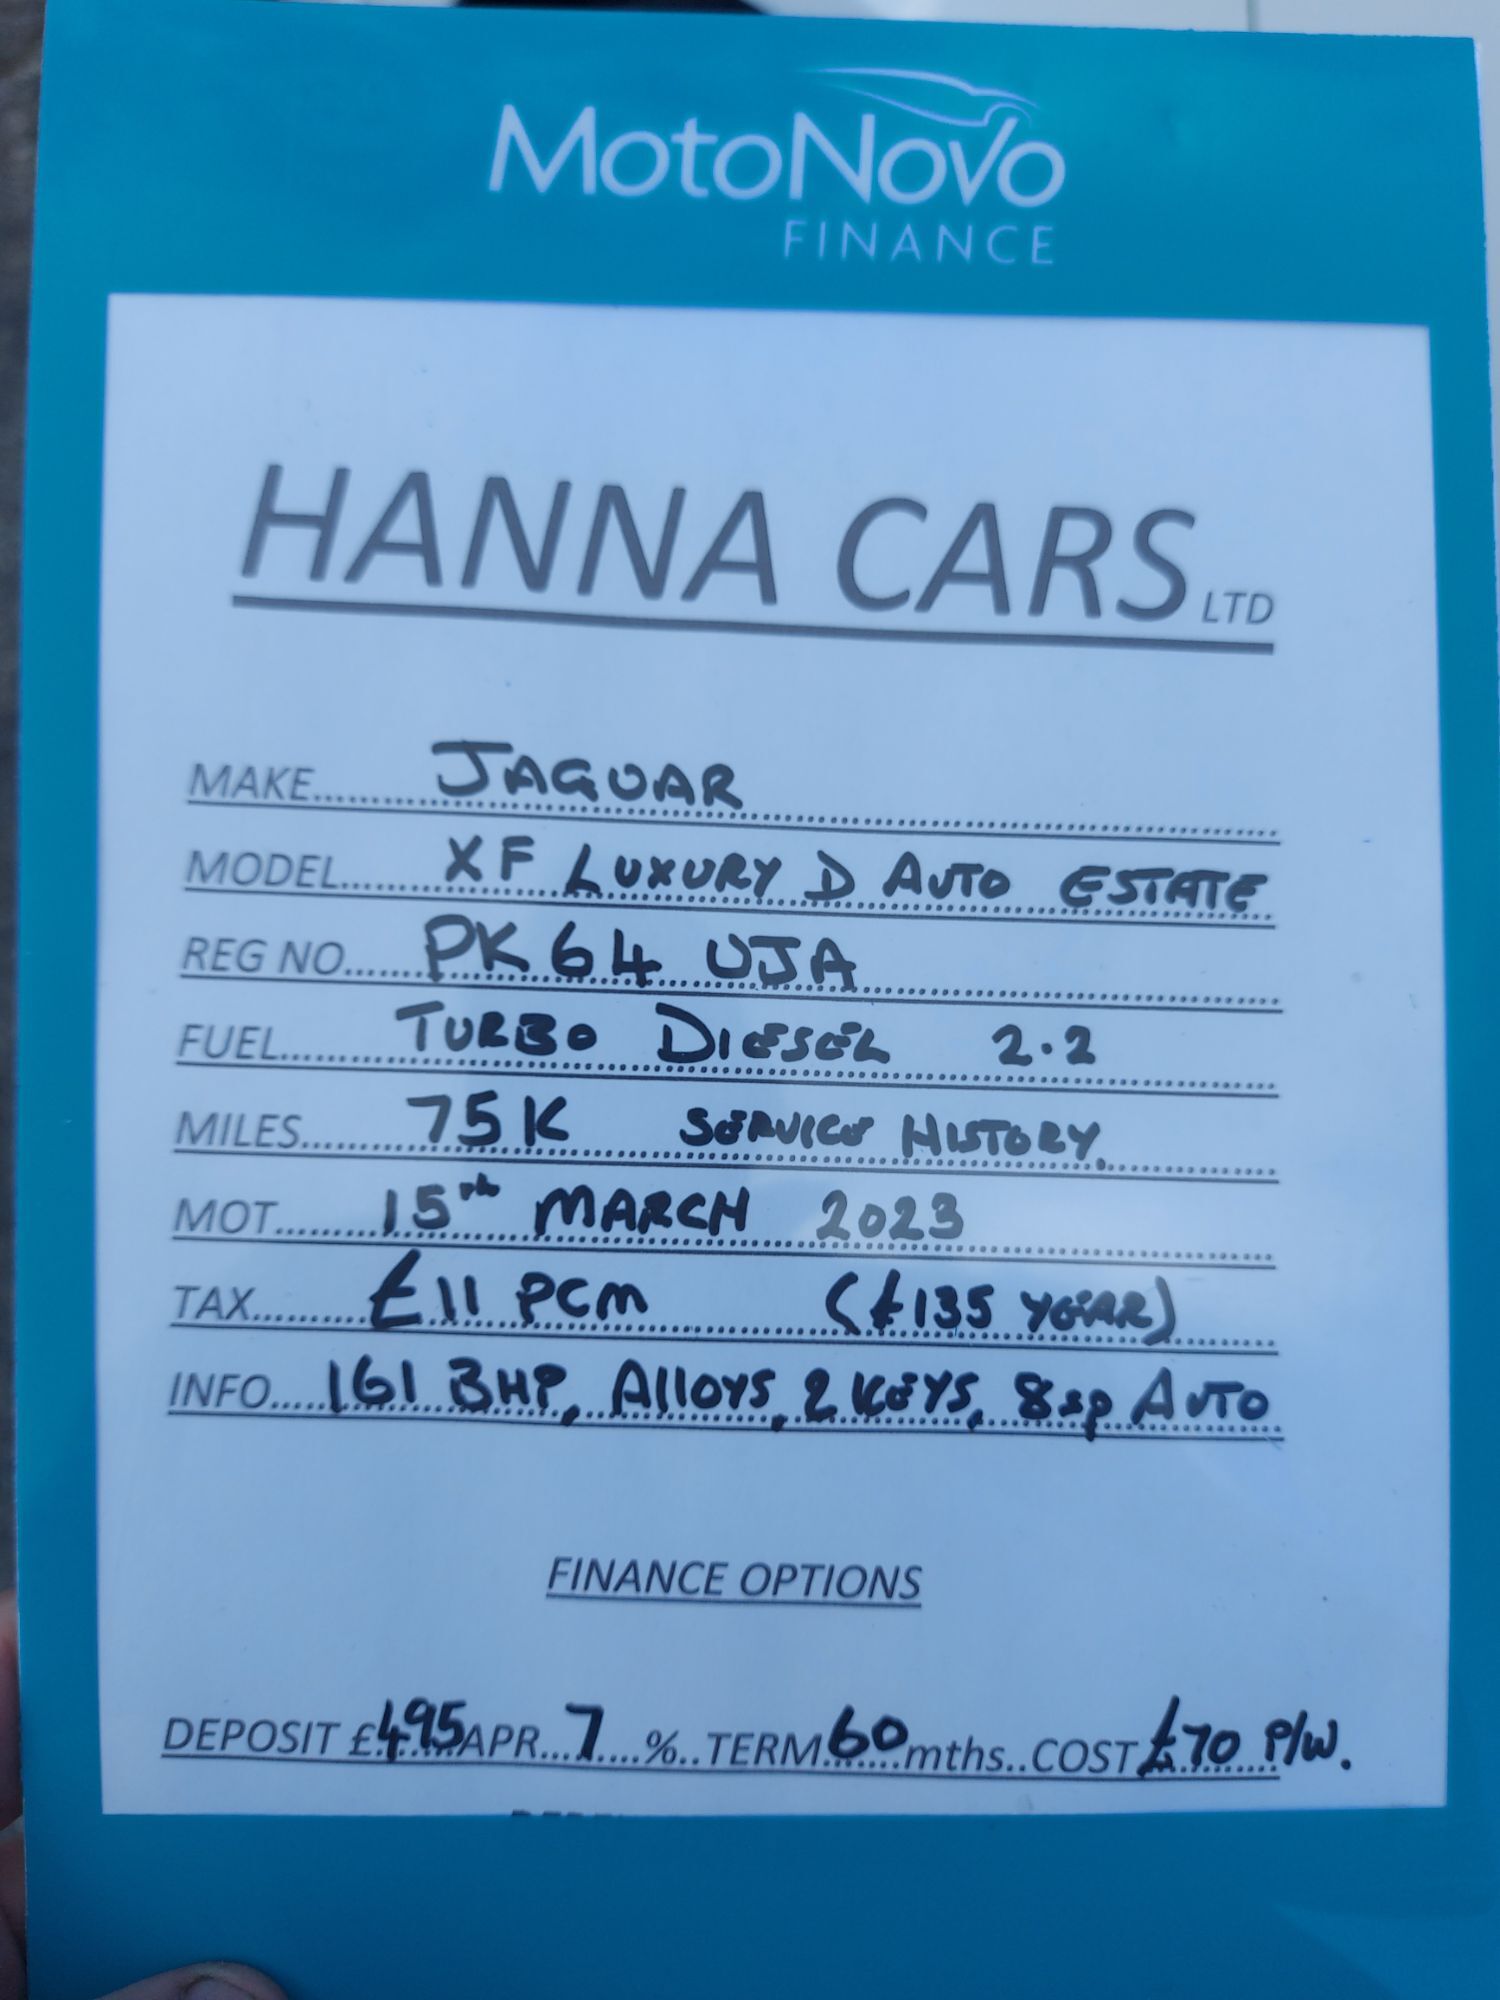 MotoNovo
FINANCE
HANNA CARS LTD
MAKE....... JAGUAR
MODEL....... XF LUXURY D AUTO ESTATE
REG NO....... PK64 UJA
FUEL....... TURBO DIESEL 2.2
MILES....... 75K SERVICE HISTORY.
MOT....... 15th MARCH 2023
TAX....... £11 PCM (£135 YEAR)
INFO....... 161 BHP, Alloys, 2 KEYS, 8sp AUTO
FINANCE OPTIONS
DEPOSIT £495 APR...7....%..TERM 60 mths..COST £70 P/W.